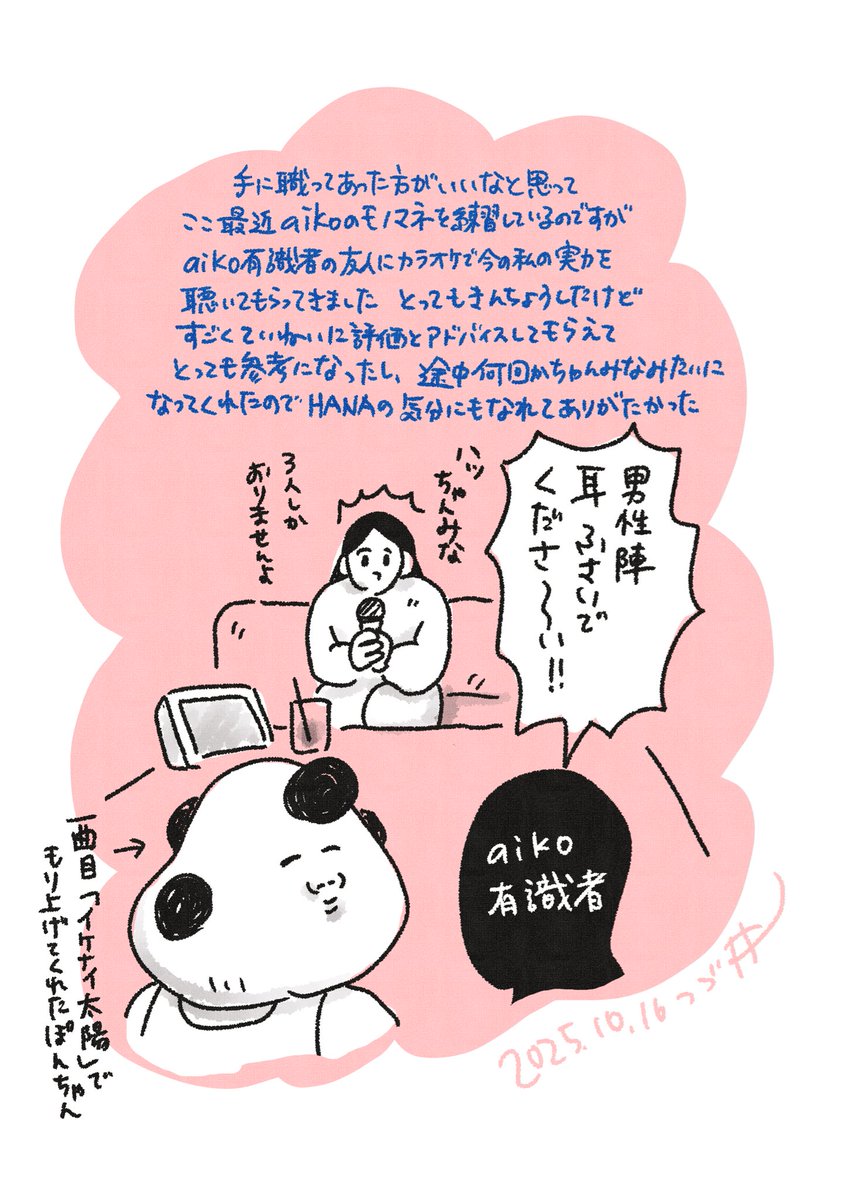 手に職ってあった方がいいなと思って
ここ最近aikoのモノマネを練習しているのですが
aiko有識者の友人にカラオケで今の私の実力を
聴いてもらってきました とってもきんちょうしたけど
すごくていねいに評価とアドバイスしてもらえて
とっても参考になったし、途中何回かちゃんみなみたいに
なってくれたのでHANAの気分にもなれてありがたかった
男性陣
耳ふさいで
くださ〜〜い!!
ハッ
ちゃんみな
3人しか
おりませんよ
aiko
有識者
一曲目「イケナイ太陽」で
もり上げてくれたぽんちゃん
2025.10.16 つづ井